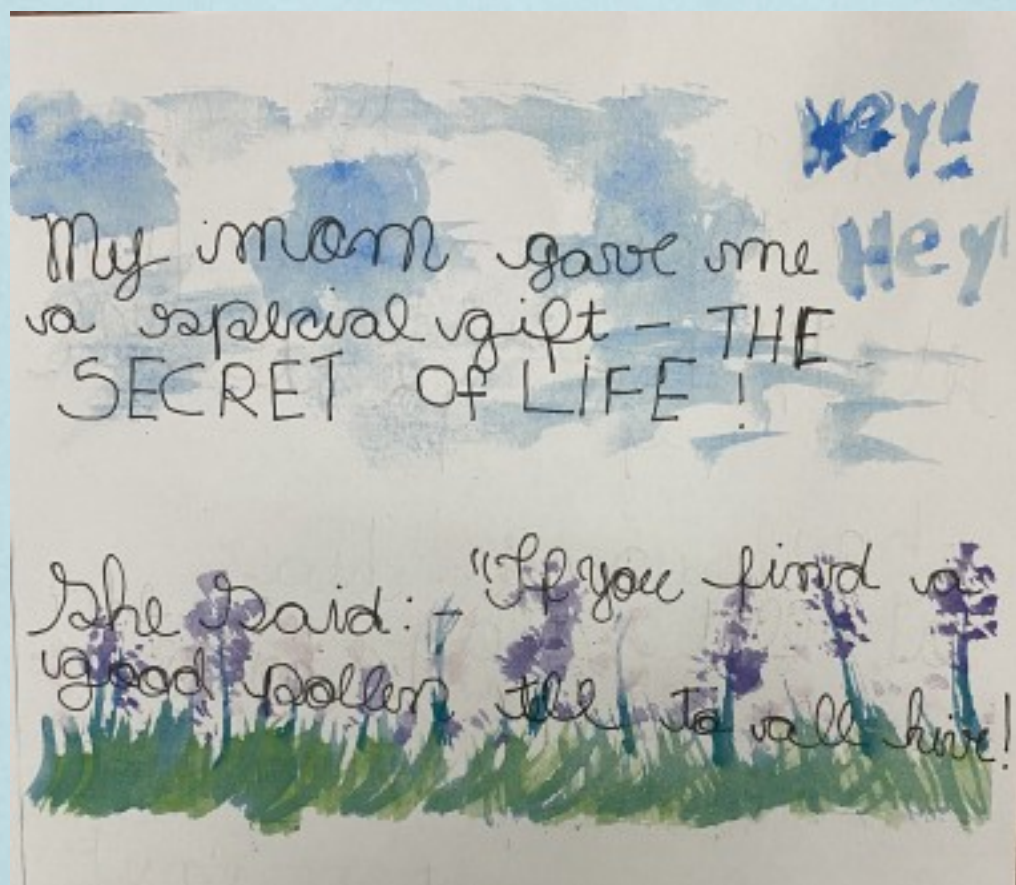 Hey!
Hey
My mom gave me
a special gift – THE
SECRET Of LIFE!
She said:– "If you find a
good pollen tell to all hive!